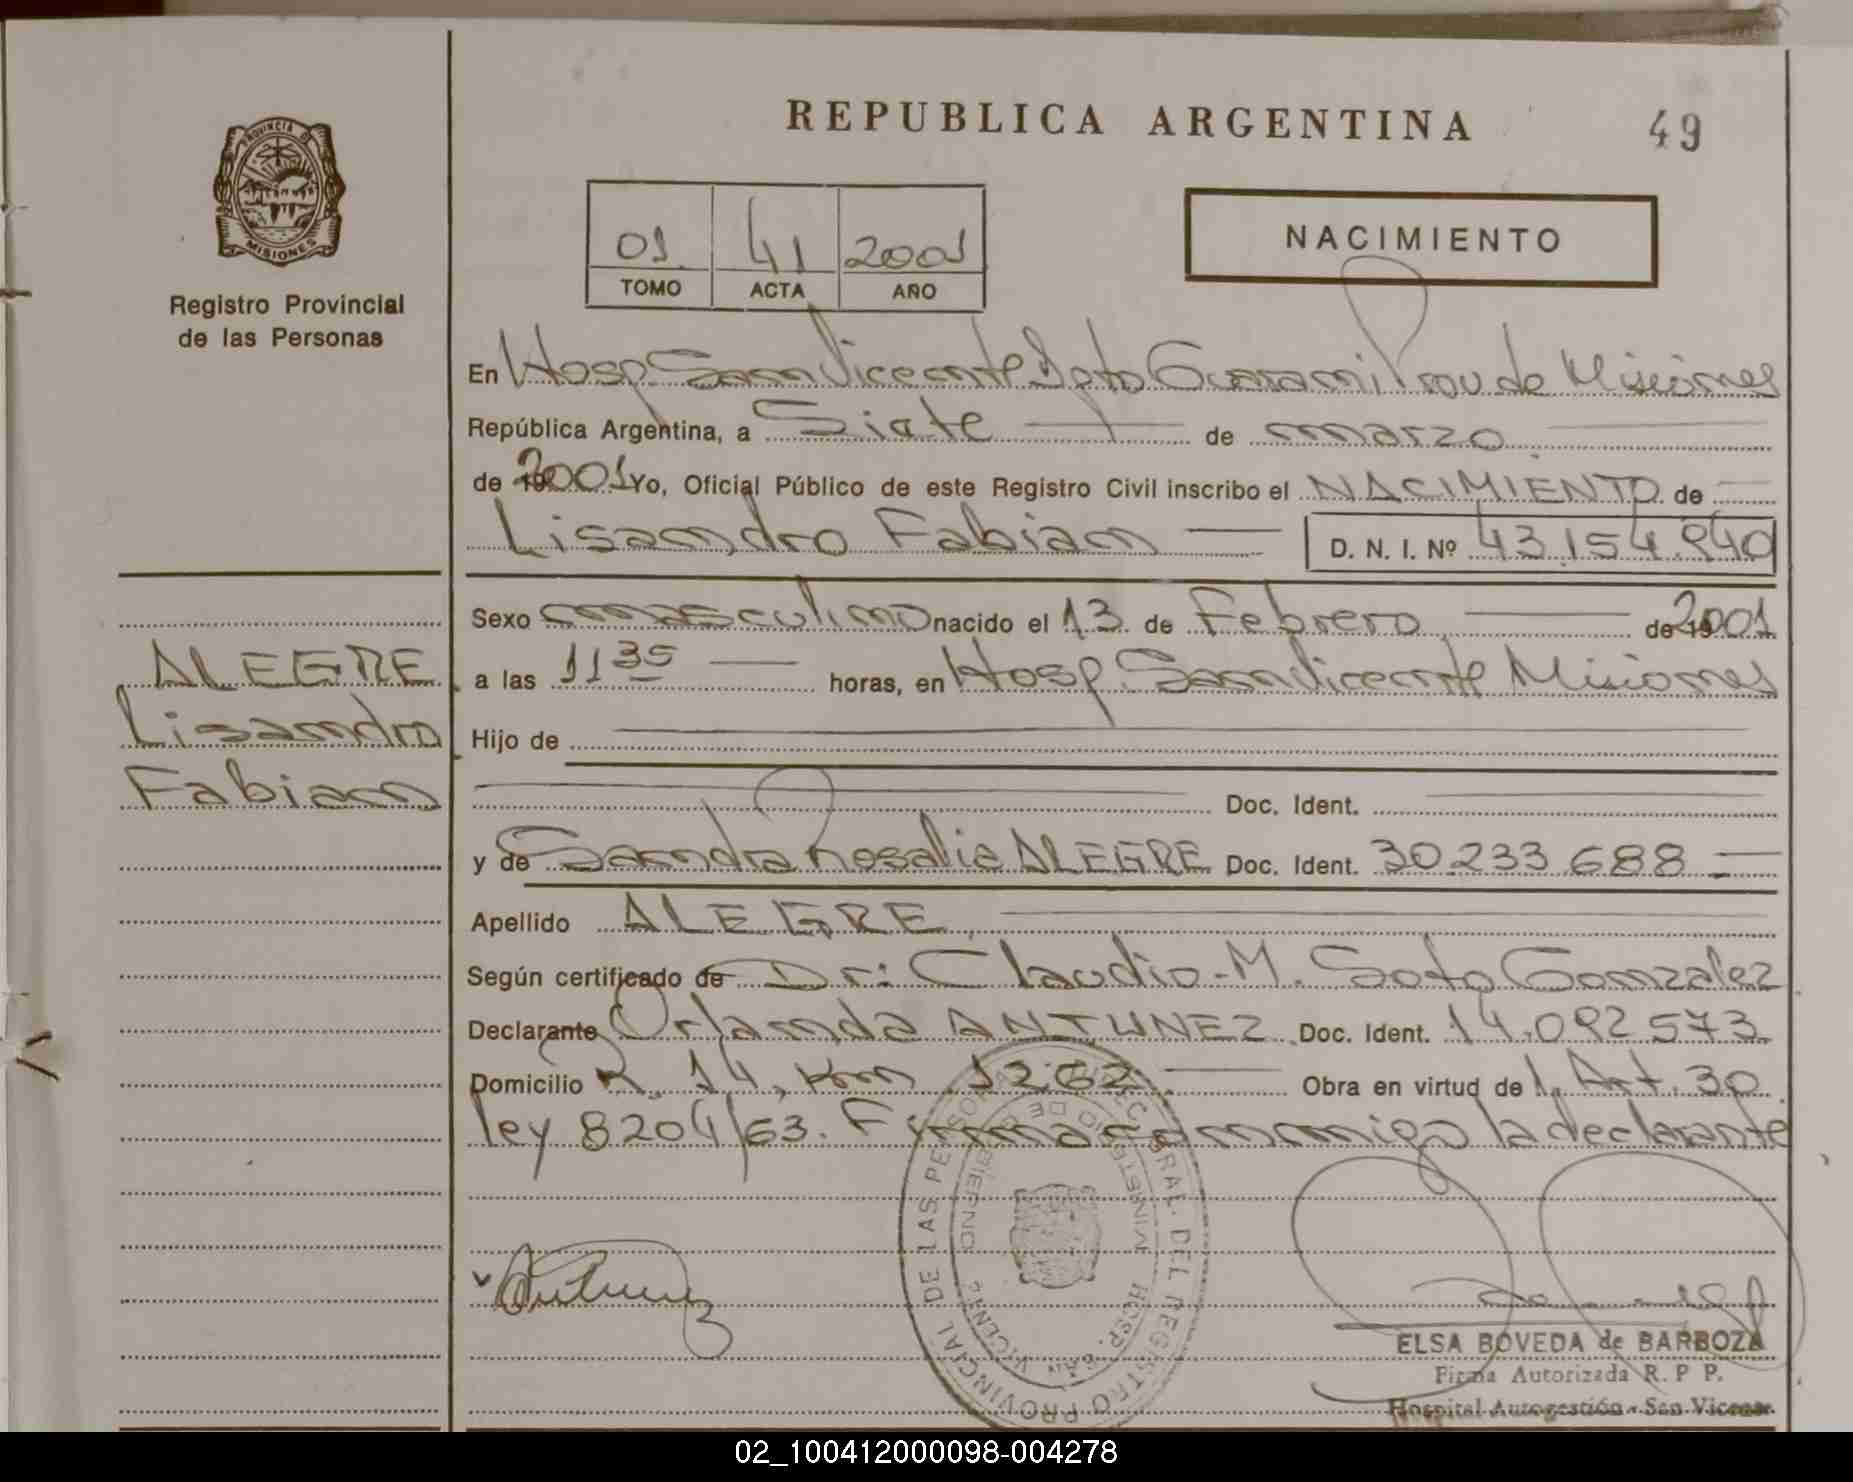 REPUBLICA ARGENTINA
49
PROVINCIA DE
MISIONES
Registro Provincial
de las Personas
01 41 2001
TOMO ACTA AÑO
NACIMIENTO
En Hosp. San Vicente Dpto Guarani Prov de Misiones
República Argentina, a Siete de marzo
de 2001 Yo, Oficial Público de este Registro Civil inscribo el NACIMIENTO de
Lisandro Fabian D. N. I. Nº 43.154.840
Sexo masculino nacido el 13 de Febrero de 2001
a las 11 35 horas, en Hosp. San Vicente Misiones
Hijo de
Doc. Ident.
y de Sandra Rosalia ALEGRE Doc. Ident. 30.233.688
Apellido ALEGRE
Según certificado de Dr: Claudio M. Soto Gonzalez
Declarante Orlanda ANTUNEZ Doc. Ident. 14.092.573
Domicilio R. 14, Km 1262 Obra en virtud de I. Art. 30
ley 8204/63. Firma conmigo la declarante
ALEGRE
Lisandro
Fabian
Antunez
PROVINCIAL DE LAS PERSONAS
GRAL. DEL REGISTRO
MINISTERIO DE GOBIERNO
HOSP. SAN VICENTE
ELSA BOVEDA de BARBOZA
Firma Autorizada R. P P.
Hospital Autogestión - San Vicente
02_100412000098-004278